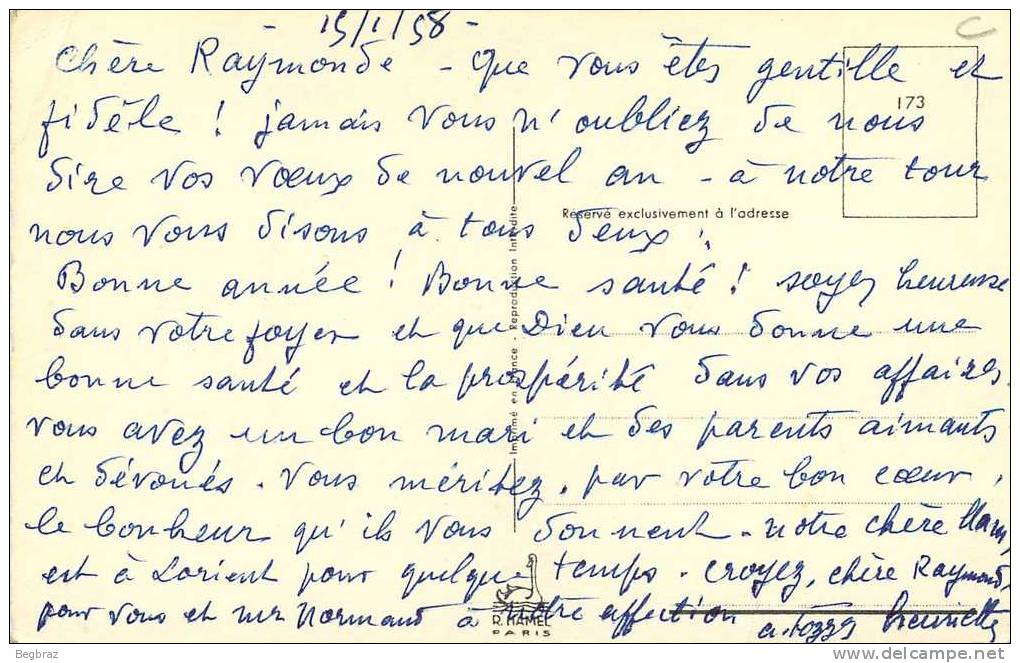 15/1/58 -
C
Chère Raymonde - que vous êtes gentille et
173
fidèle ! jamais vous n'oubliez de nous
dire vos vœux de nouvel an - à notre tour
Réservé exclusivement à l'adresse
nous vous disons à tous deux :
Bonne année ! Bonne santé ! soyez heureuse
dans votre foyer et que Dieu vous donne une
bonne santé et la prospérité dans vos affaires.
vous avez un bon mari et des parents aimants
et dévoués. Vous méritez, par votre bon cœur,
le bonheur qu'ils vous donnent. notre chère
est à Lorient pour quelque temps. croyez, chère Raymonde,
pour vous et mr Normand à notre affection
Henriette
Imprimé en France - Reproduction Interdite
R. HAMEL
PARIS
Begbraz
www.delcampe.net